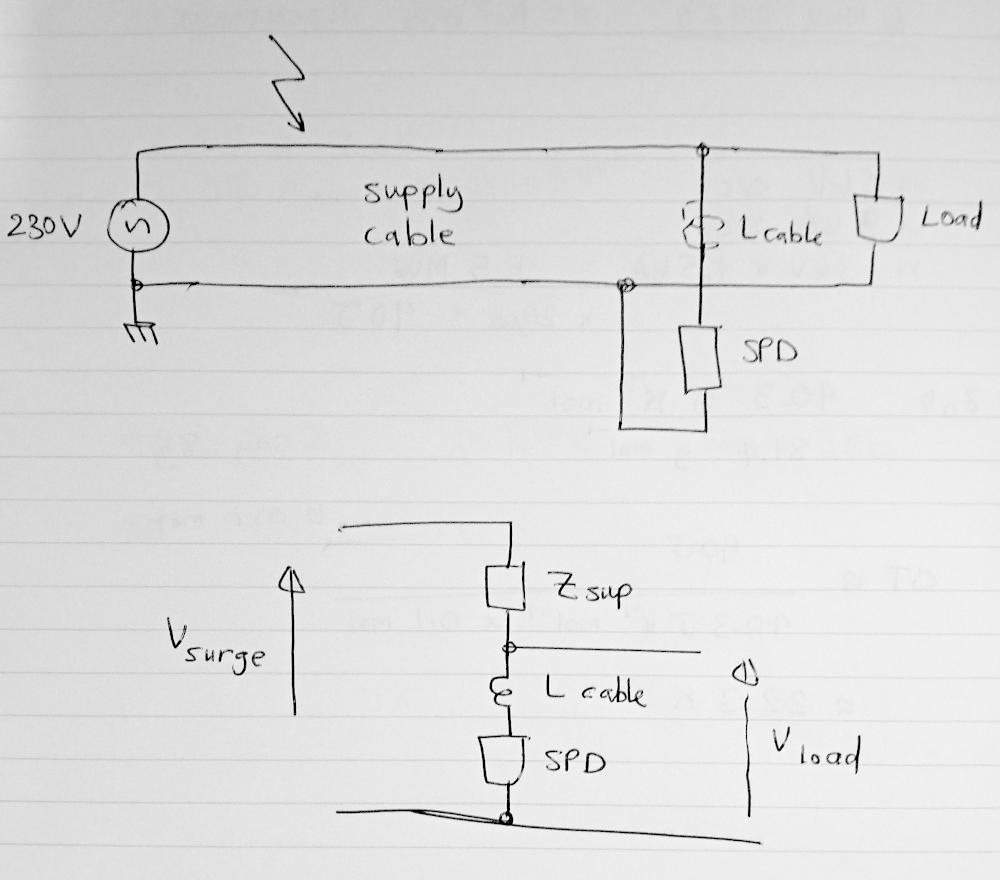 supply
cable
230V
L cable
Load
SPD
Z sup
V surge
L cable
SPD
V load